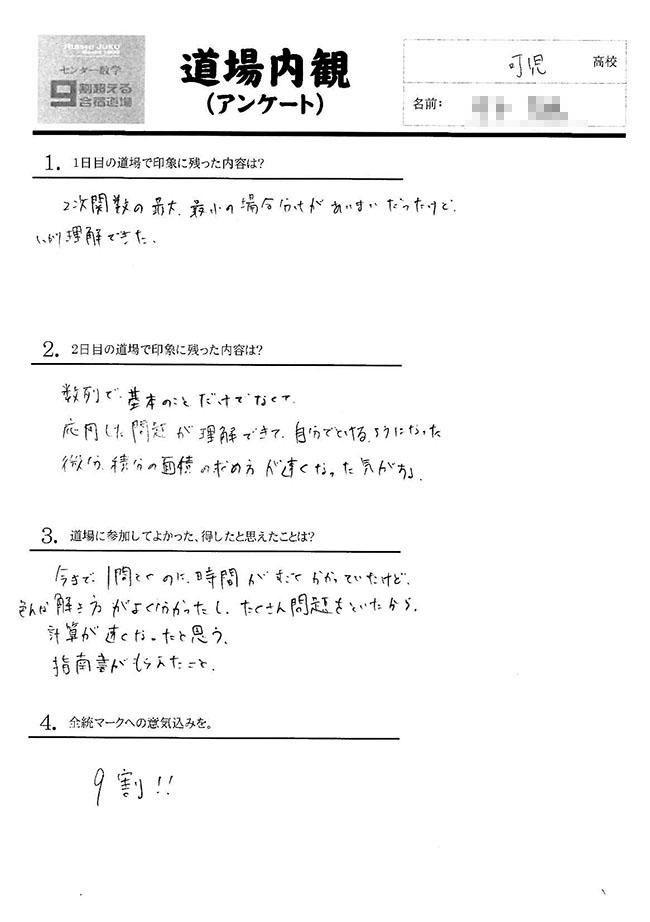 センター数学
9割超える
合宿道場
道場内観
(アンケート)
可児 高校
名前:
1. 1日目の道場で印象に残った内容は?
2次関数の最大、最小の場合分けがあいまいだったけど、
しっかり理解できた。
2. 2日目の道場で印象に残った内容は?
数列で、基本のことだけでなくて、
応用した問題が理解できて、自分でとけるようになった
微分、積分の面積の求め方が速くなった気がする。
3. 道場に参加してよかった、得したと思えたことは?
今まで、1問とくのに、時間がすごくかかっていたけど、
色んな解き方がよく分かったし、たくさん問題をといたから、
計算が速くなったと思う。
指南書がもらえたこと。
4. 全統マークへの意気込みを。
9割!!